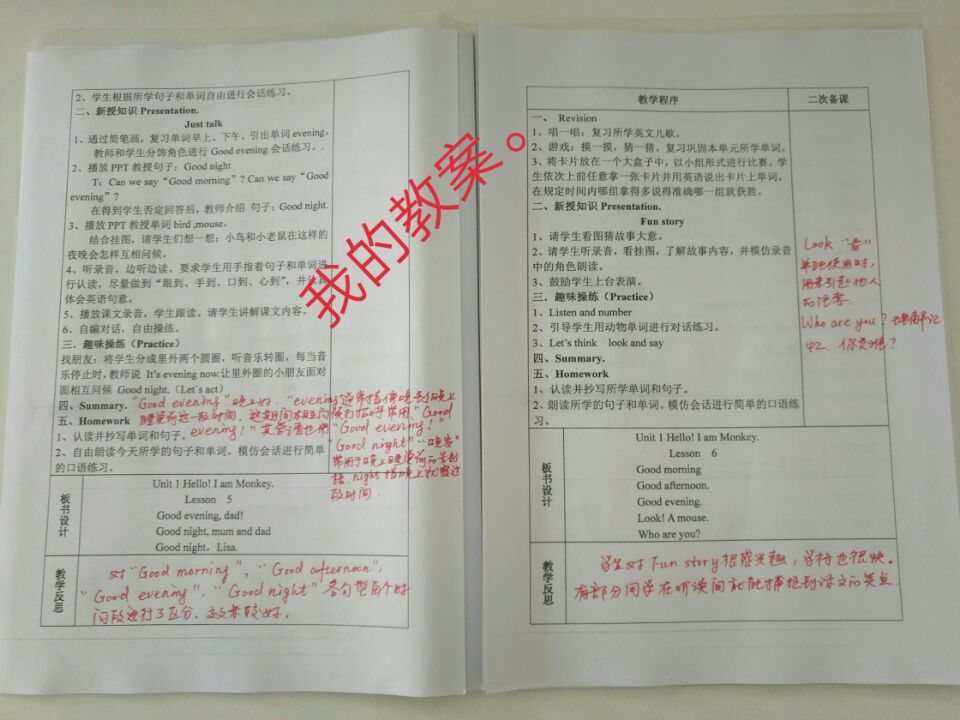 2、学生根据所学句子和单词自由进行会话练习。
二、新授知识 Presentation.
Just talk
1、通过简笔画，复习单词早上、下午，引出单词 evening，
教师和学生分饰角色进行 Good evening 会话练习。.
2、播放 PPT 教授句子：Good night
T：Can we say “Good morning”? Can we say “Good
evening”?
在得到学生否定回答后，教师介绍 句子：Good night.
3、播放 PPT 教授单词 bird ,mouse。
结合挂图，请学生们想一想：小鸟和小老鼠在这样的
夜晚会怎样互相问候。
4、听录音，边听边读，要求学生用手指着句子和单词进
行认读，尽量做到 “眼到、手到、口到、心到”，并
体会英语句意。
5、播放课文录音，学生跟读。请学生讲解课文内容。
6、自编对话，自由操练。
三、趣味操练（Practice）
找朋友：将学生分成里外两个圆圈，听音乐转圈，每当音
乐停止时，教师说 It’s evening now.让里外圈的小朋友面对
面相互问候 Good night.（Let’s act）
四、Summary. “Good evening”晚上好。“evening”通常指傍晚到晚上
睡觉前这一段时间，这期间
常用“Good
五、Homework
evening！” “Good evening！”
1、认读并抄写单词和句子。
“Good night” “晚安”
2、自由朗读今天所学的句子和单词，模仿会话进行简单
的口语练习。
night 指晚上
段时间.
板书设计
Unit 1 Hello! I am Monkey.
Lesson 5
Good evening, dad!
Good night, mum and dad
Good night，Lisa.
教学反思
对“Good morning”, “Good afternoon”,
“Good evening”, “Good night”各句型每个时
间段进行了区分，效果较好。
我的教案。
教学程序
二次备课
一、 Revision
1、唱一唱：复习所学英文儿歌。
2、游戏：摸一摸，猜一猜，复习巩固本单元所学单词。
3、将卡片放在一个大盒子中，以小组形式进行比赛。学
生依次上前任意拿一张卡片并用英语说出卡片上单词，
在规定时间内哪组拿得多说得准确哪一组就获胜。
二、新授知识 Presentation.
Fun story
1、请学生看图猜故事大意。
2、请学生听录音，看挂图，了解故事内容，并模仿录音
中的角色朗读。
3、鼓励学生上台表演。
三、趣味操练（Practice）
1、Listen and number
2、引导学生用动物单词进行对话练习。
3、Let’s think look and say
四、Summary.
五、Homework
1、认读并抄写所学单词和句子。
2、朗读所学的句子和单词，模仿会话进行简单的口语练
习。
Look “看”
单独使用时，
用来引起他人
的注意.
Who are you？
你是谁？
板书设计
Unit 1 Hello! I am Monkey.
Lesson 6
Good morning
Good afternoon.
Good evening.
Look! A mouse.
Who are you?
教学反思
学生对 Fun story 很感兴趣，学得也很快。
有部分同学在听读间就能捕捉到课文的笑点